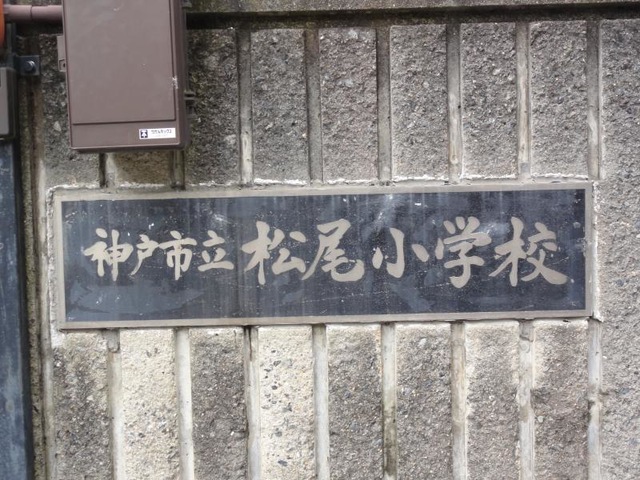 神戸市立松尾小学校